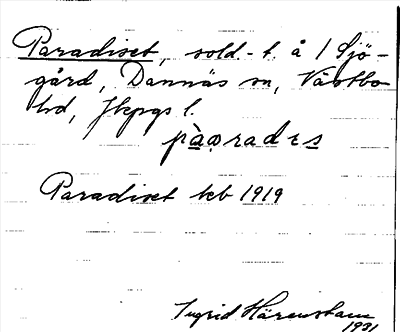 Paradiset, sold-t. å 1 Sjö-
gård, Dannäs sn, Västbo
hd, Jkpgs l.
pàɑradɛs
Paradiset kb 1919
Ingrid Härenstam
1931